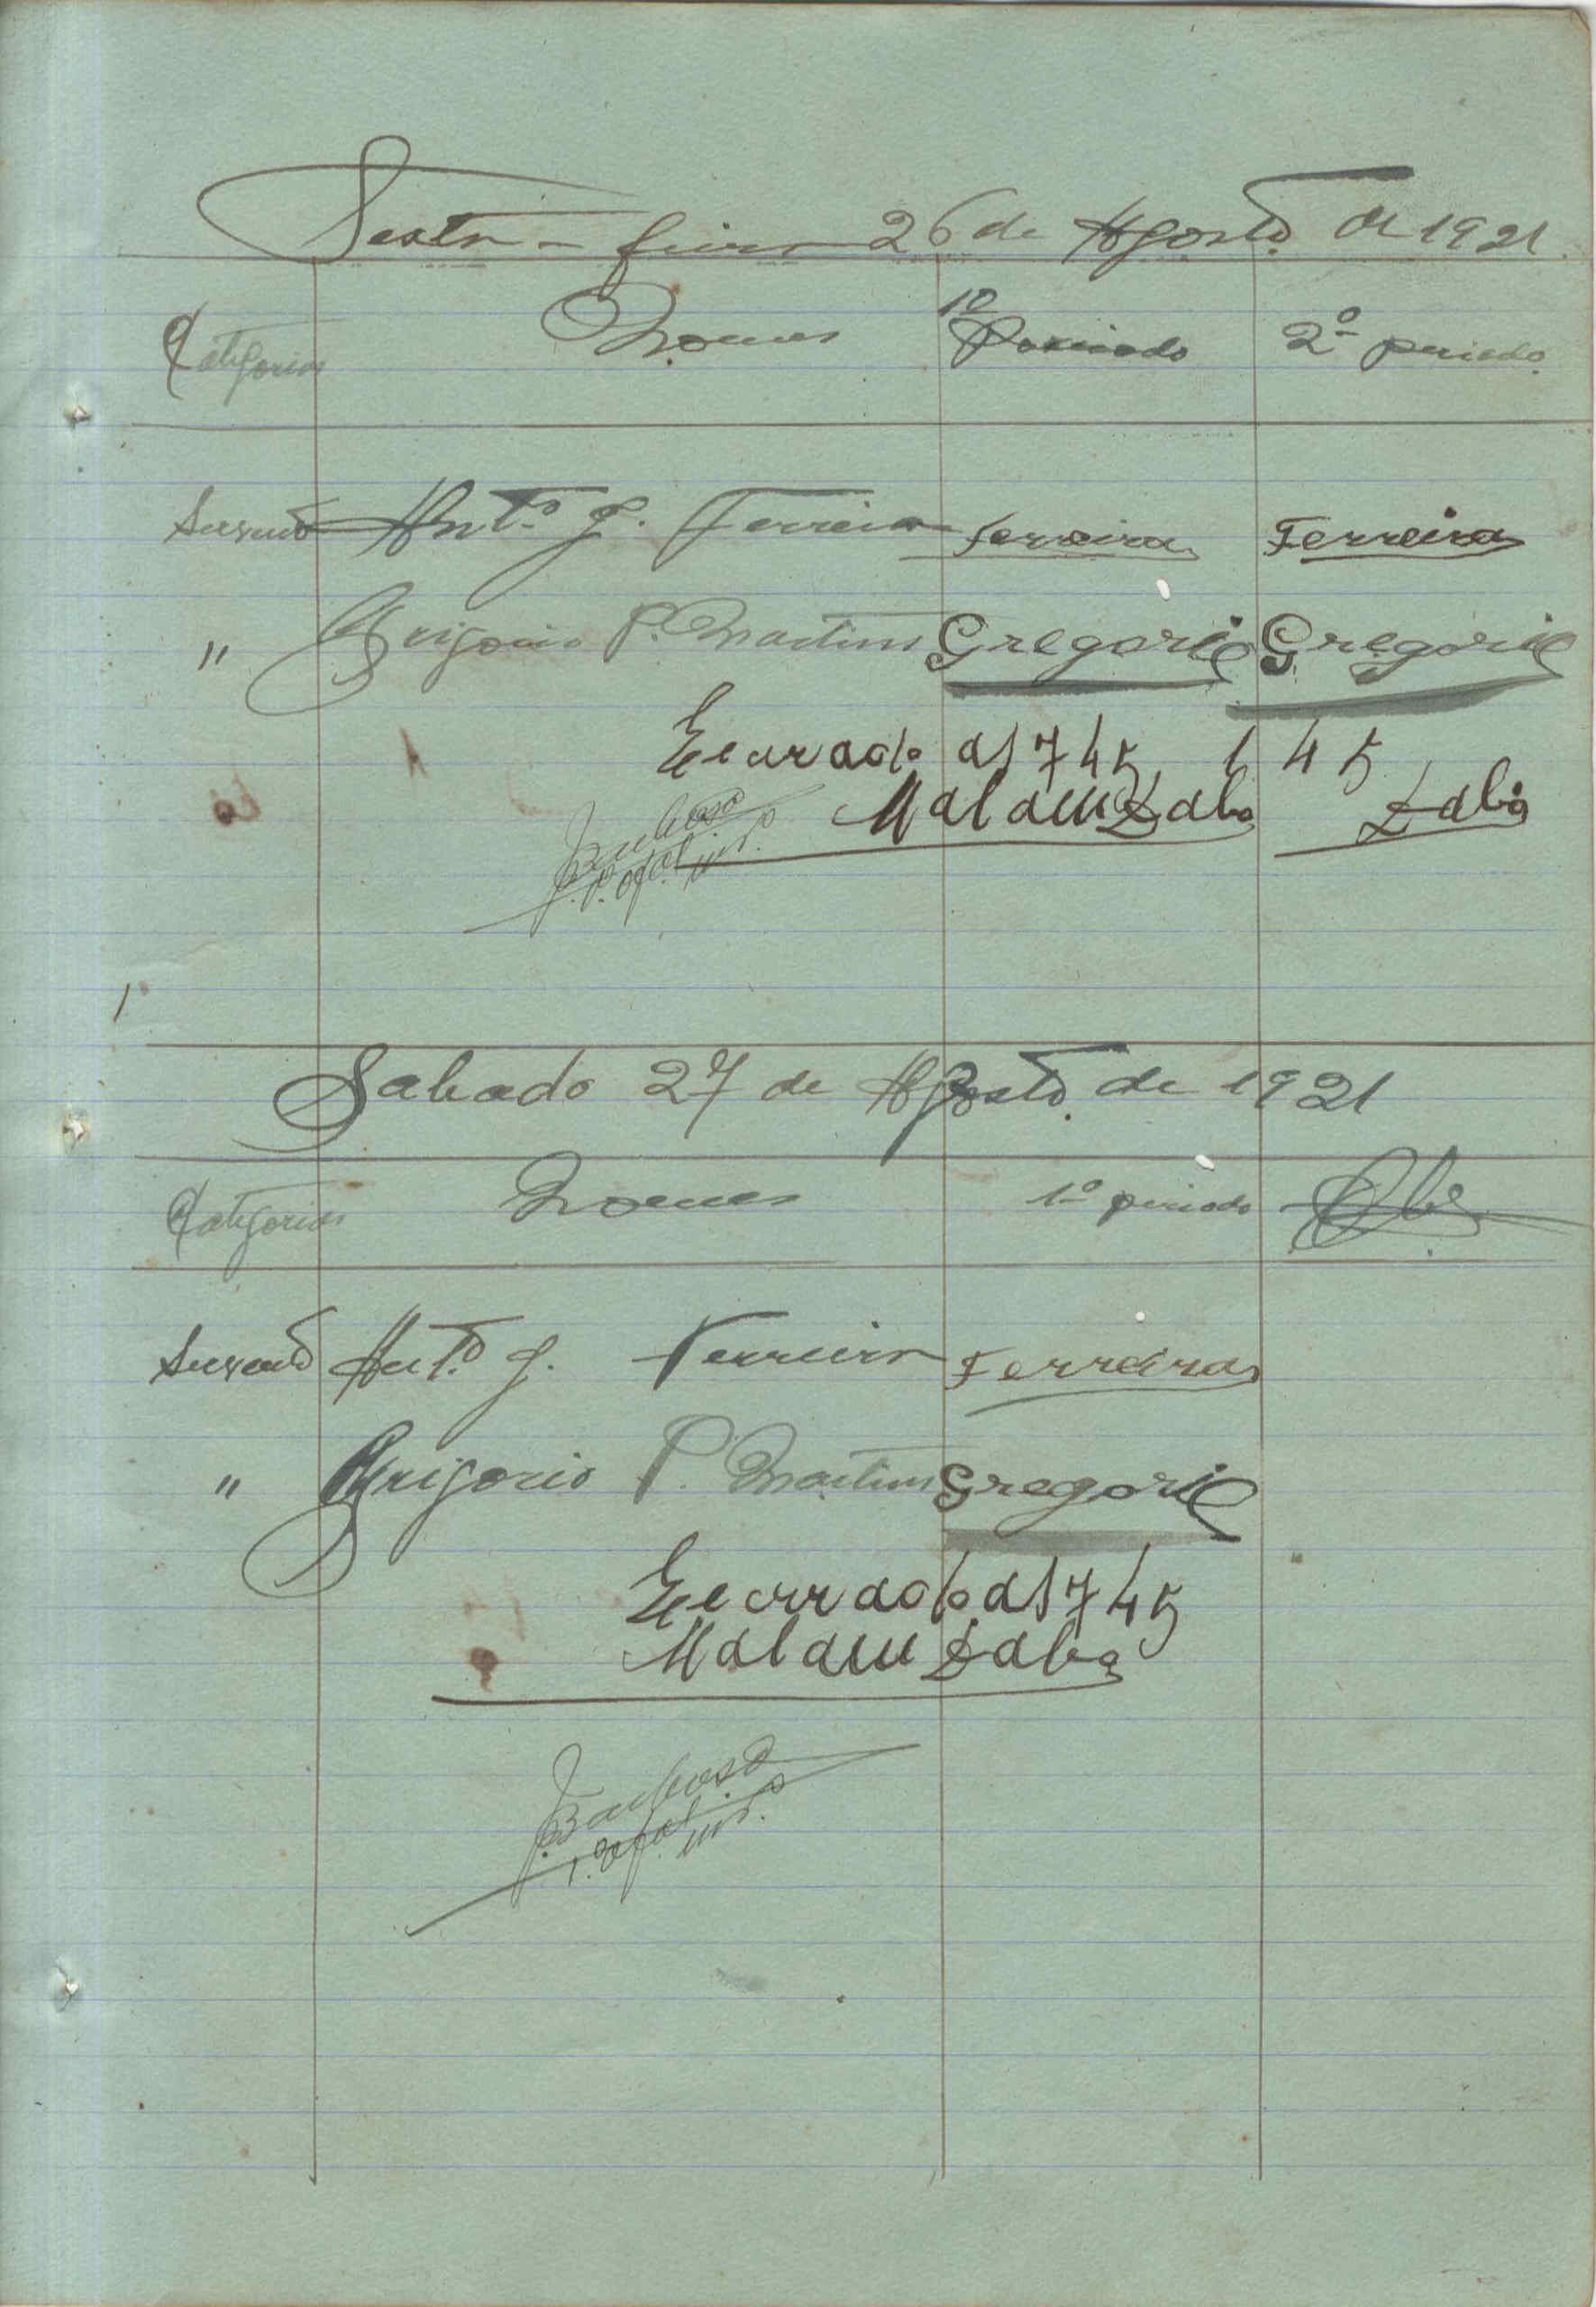 Sexta-feira 26 de Agosto de 1921
Categorias Nomes 1º Periodo 2º periodo
Servente Antº J. Ferreira Ferreira Ferreira
" Grigorio P. Martins Gregorio Gregorio
Eecrrado as 7 45 1 45
Malam Dabó Dabó
Barbosa
Sabado 27 de Agosto de 1921
Categorias Nomes 1º periodo Obs
Servente Antº J. Ferreira Ferreira
" Grigorio P. Martins Gregorio
Eecrrado as 7 45
Malam Dabó
Barbosa